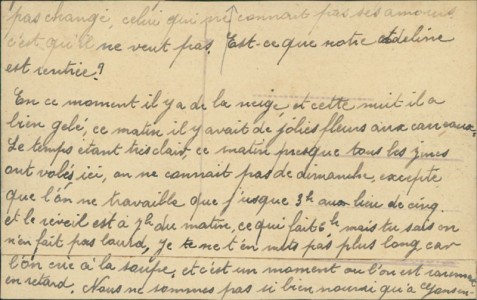 pas changé, celui qui me connait pas ses amours
c'est qu'il ne veut pas. Est-ce que notre Adeline
est rentrée ?
En ce moment il y a de la neige, et cette nuit il a
bien gelé, ce matin il y avait de jolies fleurs aux carreaux.
Le temps étant très clair, ce matin presque tous les
ont volés ici, on ne connait pas de dimanche, excepté
que l'on ne travaible que jusque 3h au lieu de cinq.
et le réveil est à 7h du matin, ce qui fait 6h mais tu sais on
n'en fait pas lourd, je ne t'en mets pas plus long car
l'on crie à la soupe, et c'est un moment ou l'on est rarement
en retard. Nous ne sommes pas si bien nourri qu'a